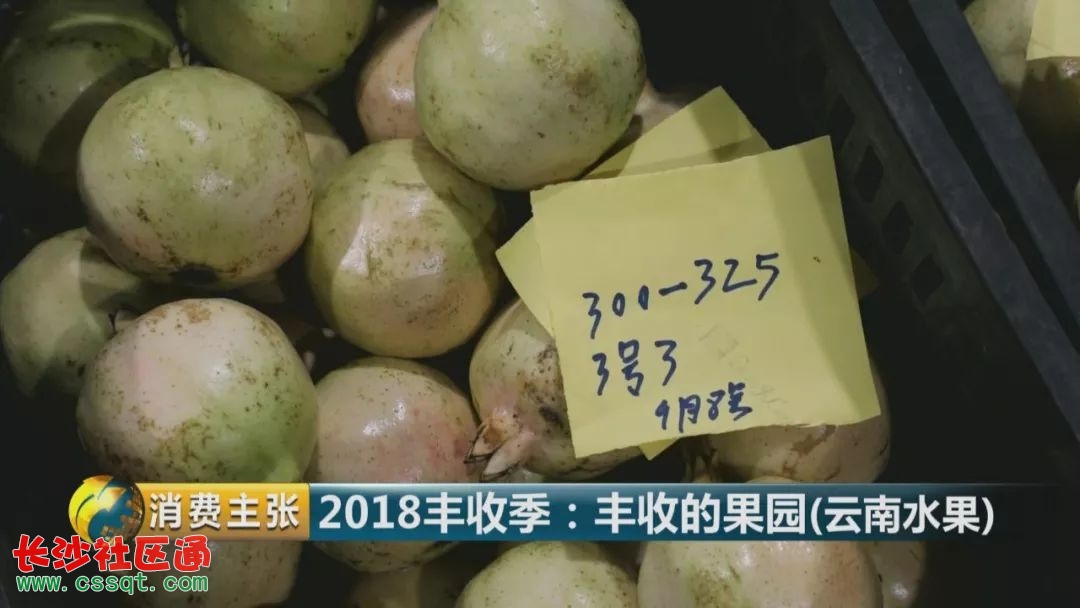 300-325
3号3
9月8号
消费主张
2018丰收季：丰收的果园(云南水果)
长沙社区通
www.cssqt.com